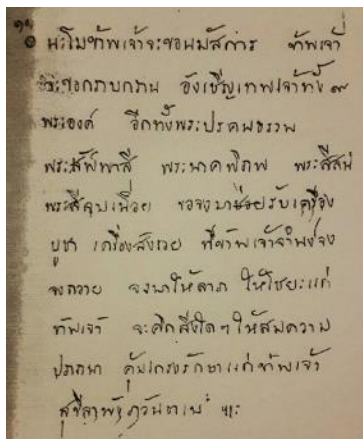 ๏ นะโมข้าพเจ้าจะขอนมัสการ ข้าพเจ้า
จะขอกราบกราน อังเชิญเทพเจ้าทั้ง ๙
พระองค์ อีกทั้งพระปรคนธรรพ
พระสัพพาสี พระนาคพิภพ
จงมาช่วยรับเครื่อง
บูชา เครื่องสังเวย ที่ข้าพเจ้าจำนงจง
จงถวาย จงมาให้ลาภ ให้ไชยะแก่
ข้าพเจ้า จะคิดสิ่งใดๆ ให้สมความ
ปรารถนา คุ้มเกรงรักษาแก่ข้าพเจ้า